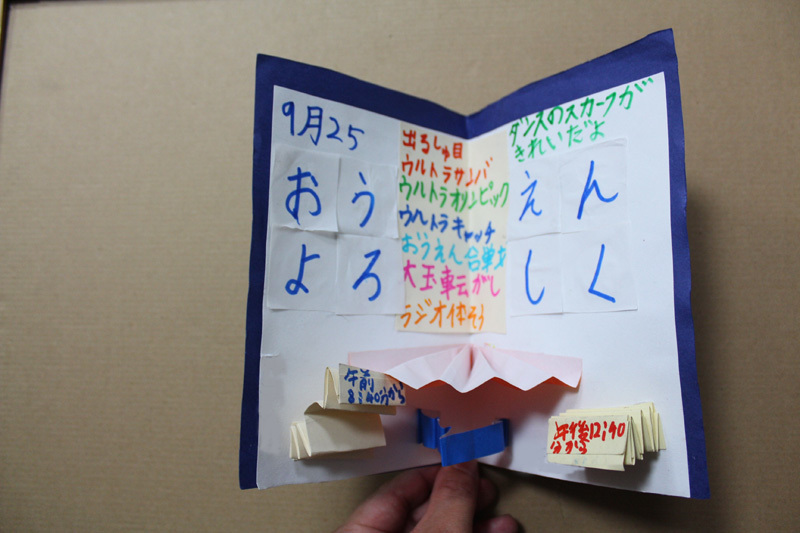 9月25
おうえん
よろしく
出るしゅ目
ウルトラサンバ
ウルトラオリンピック
ウルトラキャッチ
おうえん合戦
大玉転がし
ラジオ体そう
ダンスのスカーフが
きれいだよ
午前
8:40分から
午後12:40